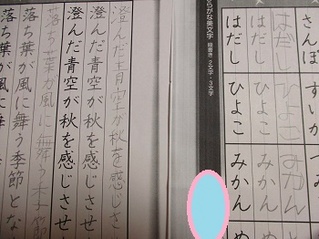 さんぽ
すいか
はだし
ひよこ
みかん
はだし
ひよこ
みかん
はだし
ひよこ
みかん
ひらがな美文字
澄んだ青空が秋を感じさ
澄んだ青空が秋を感じさせ
澄んだ青空が秋を感じさせ
落ち葉が風に舞う季節
落ち葉が風に舞う季節とな
落ち葉が風に舞